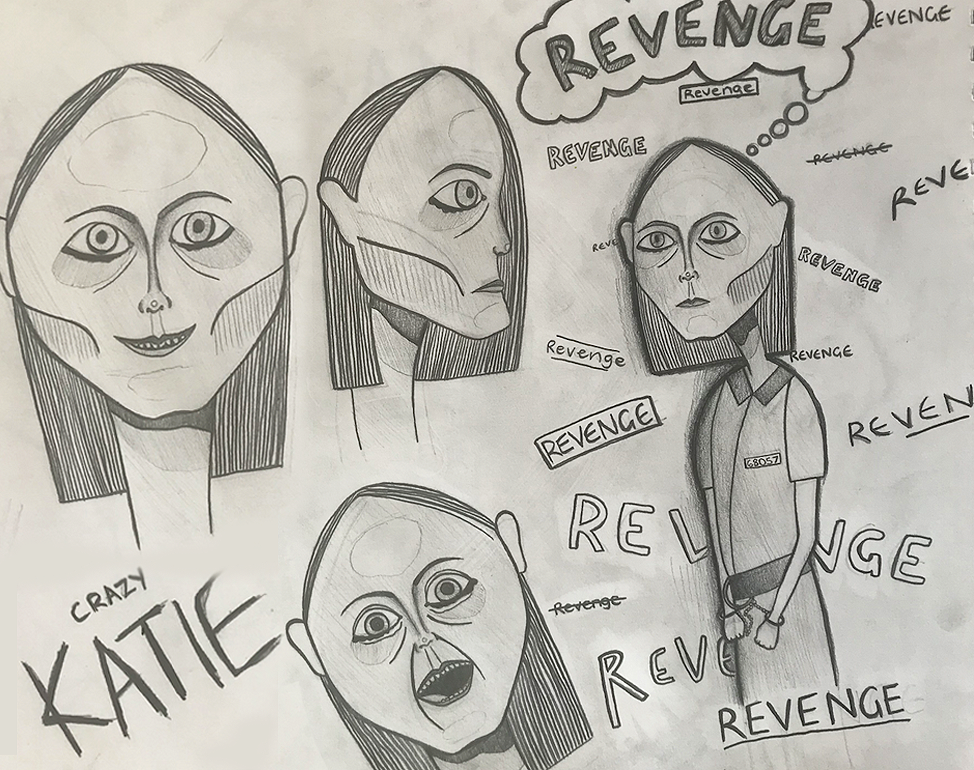 REVENGE
EVENGE
Revenge
REVENGE
REVENGE
REVE
REVE
REVENGE
Revenge
REVENGE
REVENGE
REVEN
68057
RE NGE
CRAZY
KATIE
Revenge
REVE
REVENGE